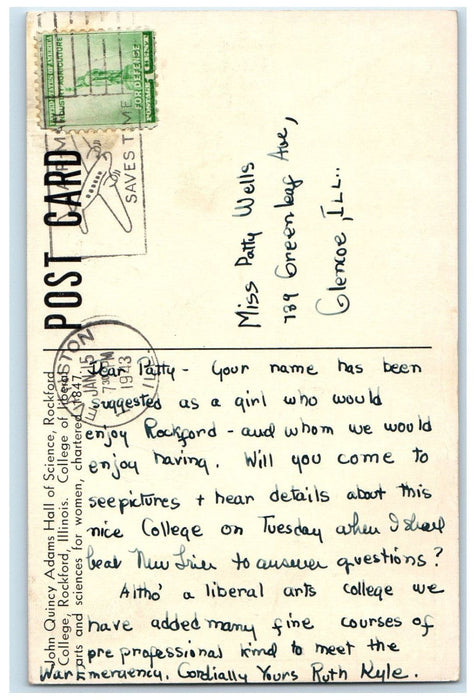 UNITED STATES OF AMERICA
INDUSTRY AGRICULTURE
FOR DEFENSE
POSTAGE 1 CENT
SAVES TIME
POST CARD
EVANSTON
JAN 15
7 30 PM
1943
ILL.
John Quincy Adams Hall of Science, Rockford
College, Rockford, Illinois. College of liberal
arts and sciences for women, chartered 1847.
Miss Patty Wells
739 Greenleaf Ave,
Glencoe, ILL..
Dear Patty - Your name has been
suggested as a girl who would
enjoy Rockford - and whom we would
enjoy having. Will you come to
see pictures + hear details about this
nice College on Tuesday when I shall
be at New Trier to answer questions?
Altho' a liberal arts college we
have added many fine courses of
pre professional kind to meet the
War Emergency. Cordially Yours Ruth Kyle.